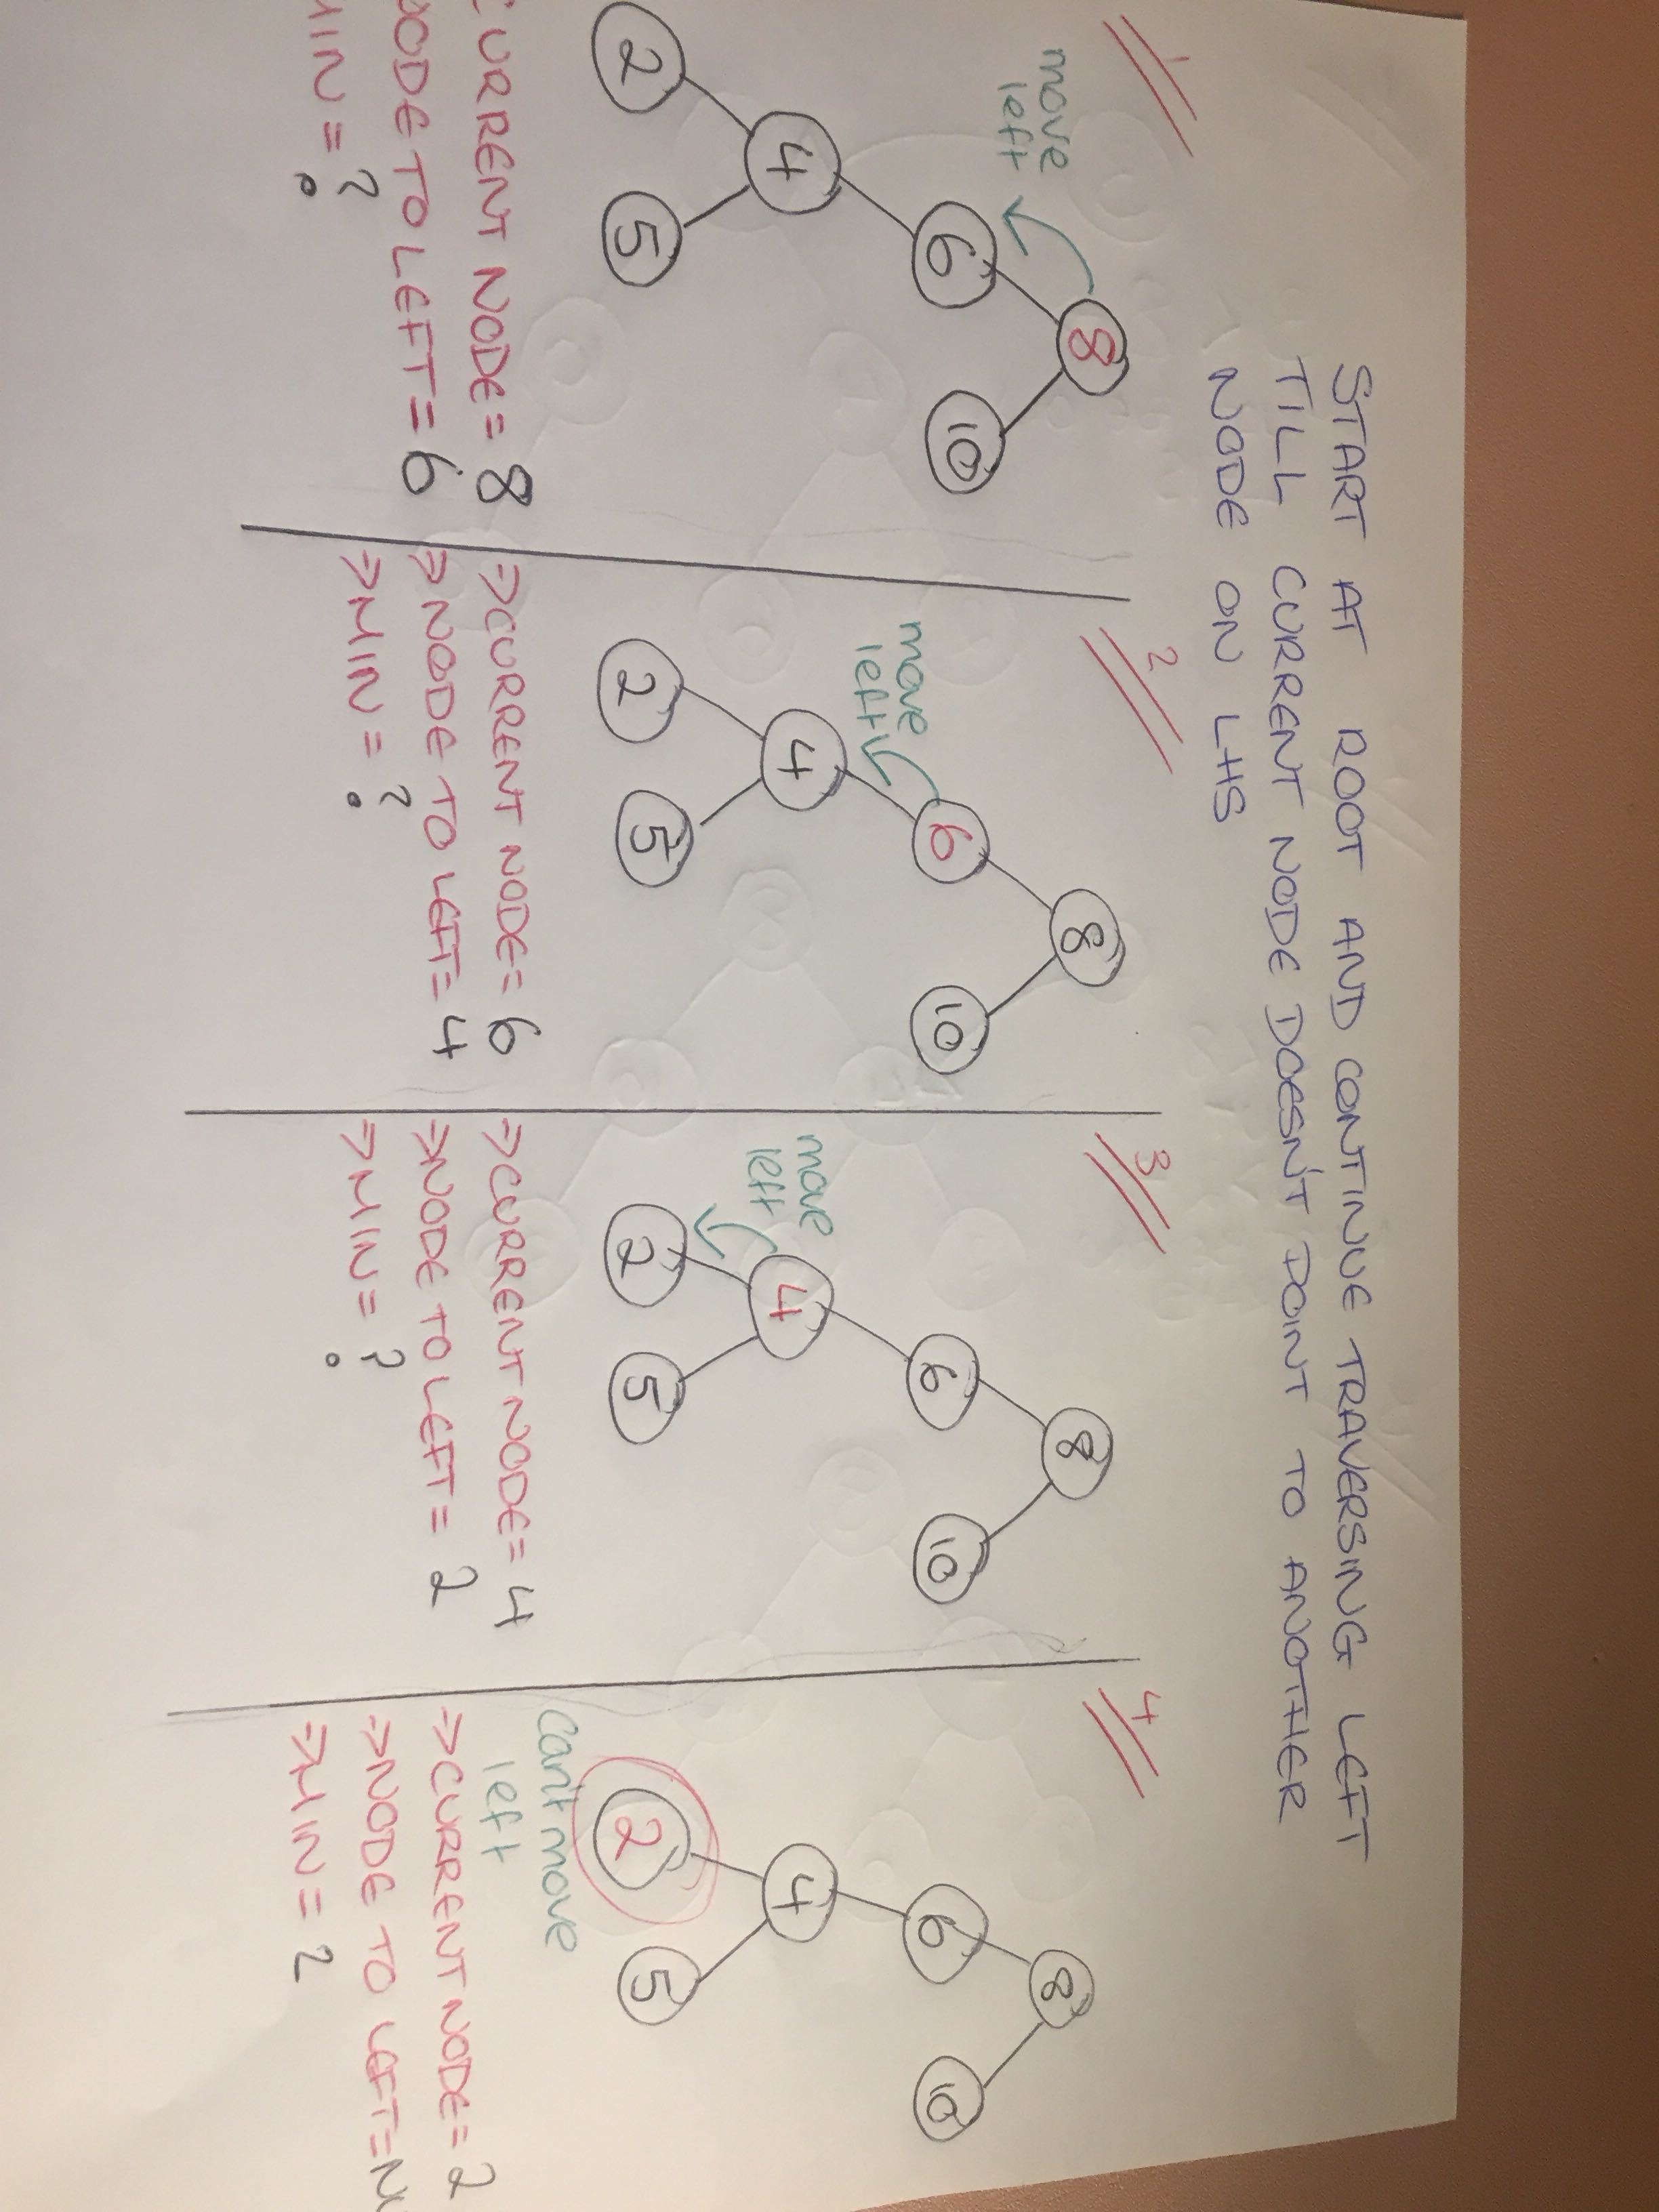 START AT ROOT AND CONTINUE TRAVERSING LEFT
TILL CURRENT NODE DOESN'T POINT TO ANOTHER
NODE ON LHS
1
move
left
8
6
10
4
2
5
CURRENT NODE = 8
NODE TO LEFT = 6
MIN = ?
2
move
left
8
6
10
4
2
5
=> CURRENT NODE = 6
=> NODE TO LEFT = 4
=> MIN = ?
3
move
left
8
6
10
4
2
5
=> CURRENT NODE = 4
=> NODE TO LEFT = 2
=> MIN = ?
4
8
6
10
4
2
5
can't move
left
=> CURRENT NODE = 2
=> NODE TO LEFT =
=> MIN = 2